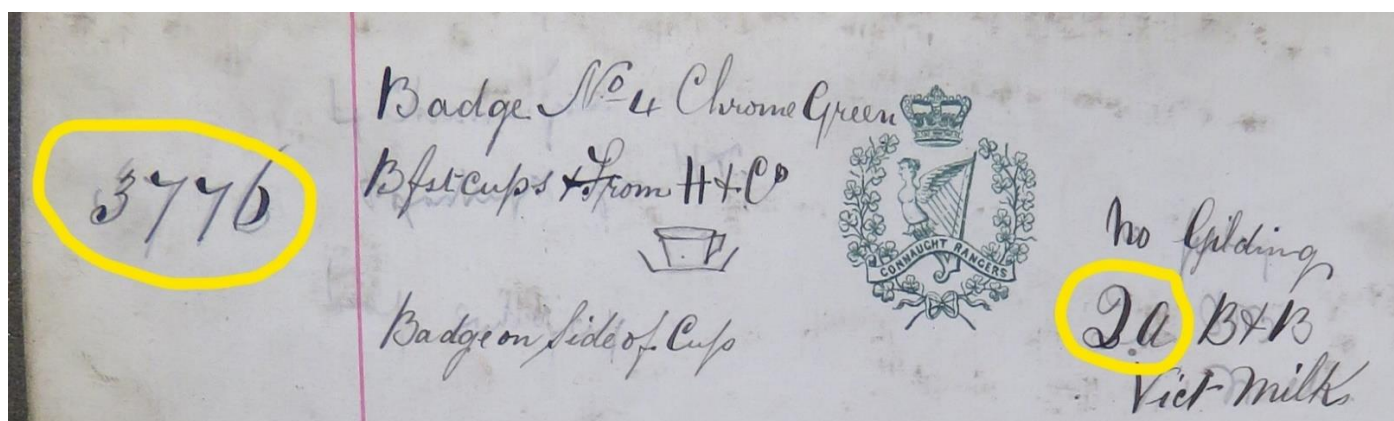 3776
Badge No 4 Chrome Green
Bfst cups & From H & Co
Badge on Side of Cup
CONNAUGHT RANGERS
No Gilding
D.a B & B
Vict Milks